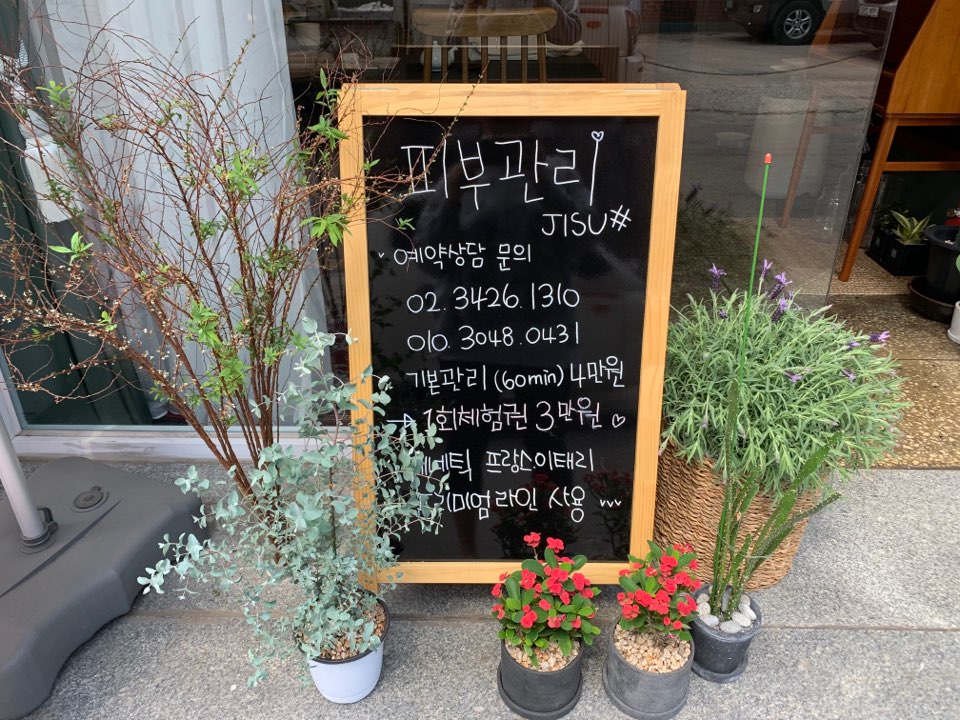 피부관리
JISU#
예약상담 문의
02. 3426. 1310
010. 3048. 0431
기본관리 (60min) 4만원
1회체험권 3만원 ♡
프랑스.이태리
라인 사용